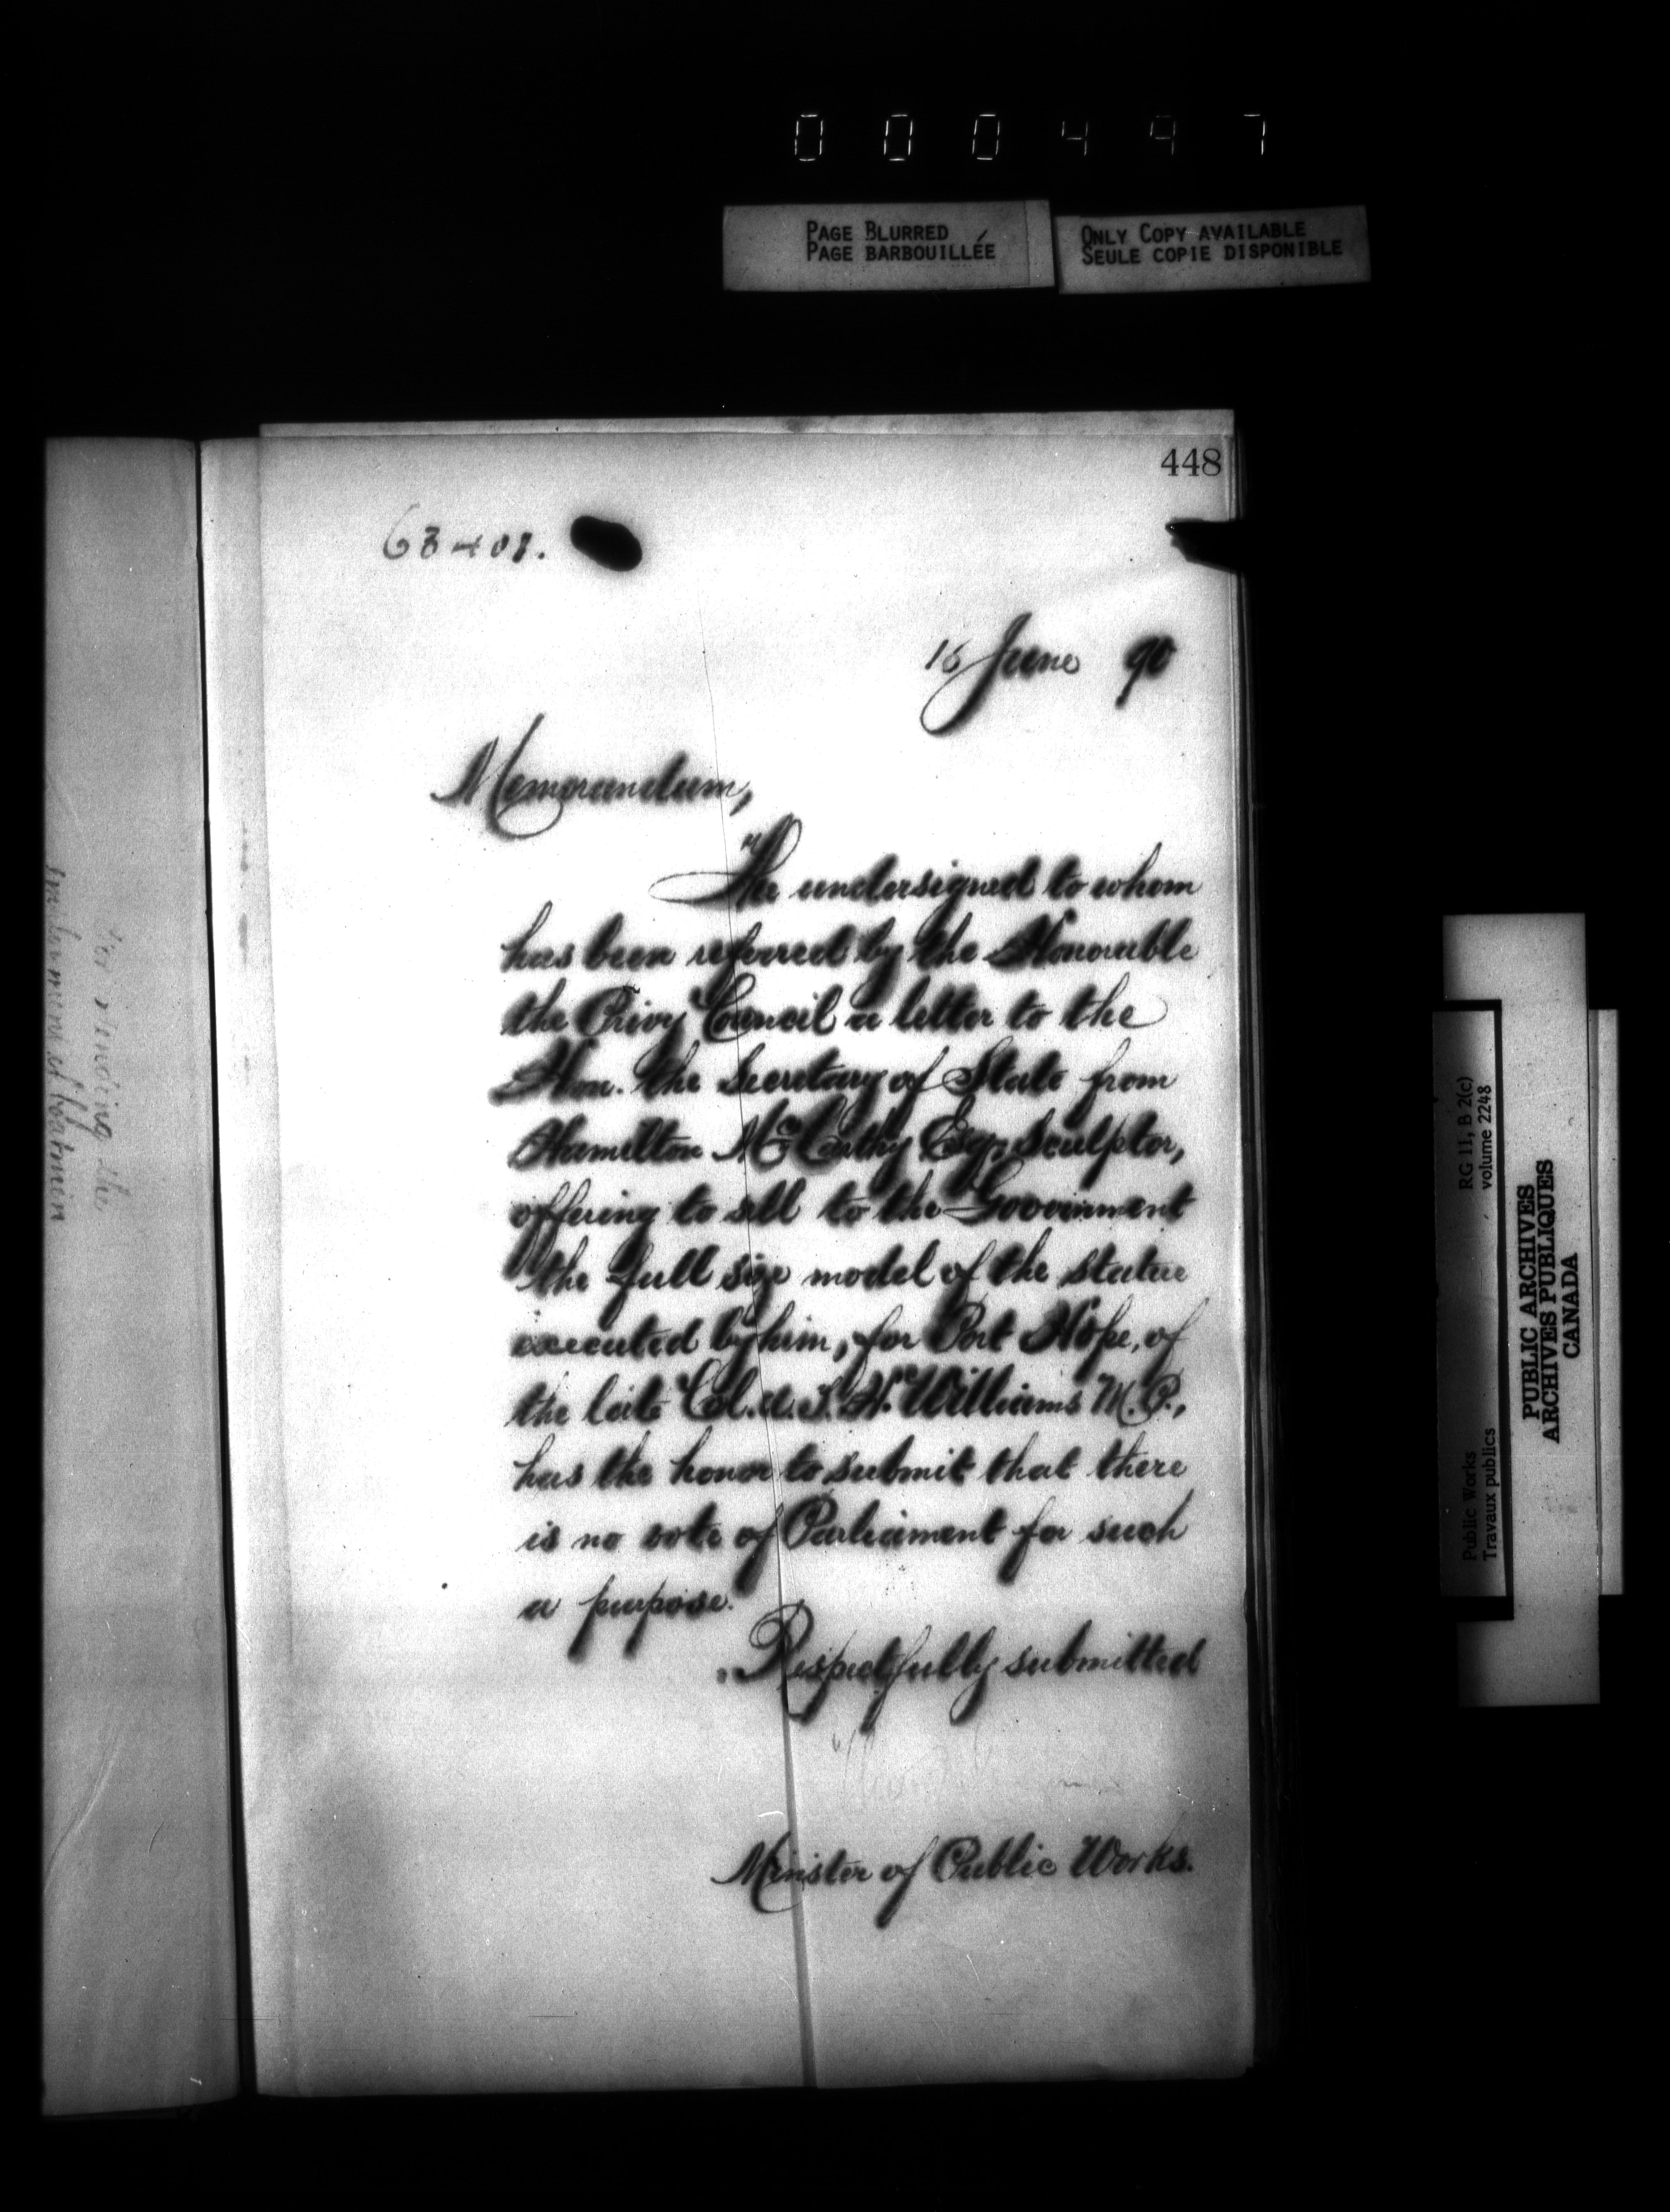 000497
PAGE BLURRED
PAGE BARBOUILLÉE
ONLY COPY AVAILABLE
SEULE COPIE DISPONIBLE
448
63401.
June 90
Memorandum,
The undersigned to whom
has been referred by the Honourable
the Privy Council a letter to the
Hon. the Secretary of State from
Hamilton McCarthy Esq, Sculptor,
offering to sell to the Government
the full size model of the statue
executed by him, for Port Hope, of
the late Col. A. T. H. Williams M.P.,
has the honor to submit that there
is no vote of Parliament for such
a purpose.
Respectfully submitted
Minister of Public Works.
Public Works
Travaux publics
RG 11, B 2(c)
volume 2248
PUBLIC ARCHIVES
ARCHIVES PUBLIQUES
CANADA